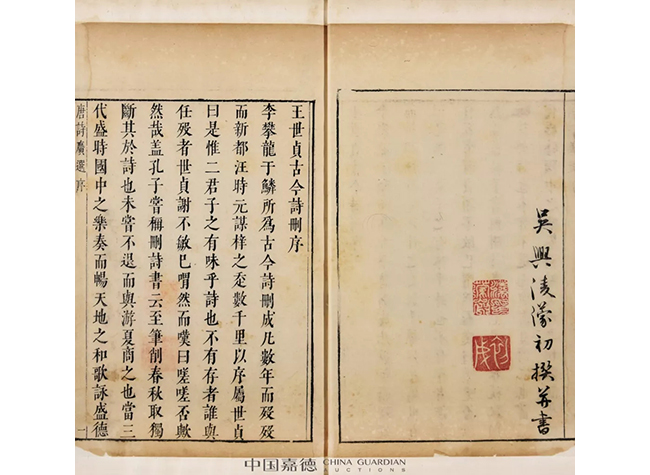 吳興淩濛初撰并書
王世貞古今詩刪序
李攀龍于鱗所爲古今詩刪成凡數年而歿歿
而新都汪時元謀梓之走數千里以序屬世貞
曰是惟二君子之有味乎詩也不有存者誰與
任歿者世貞謝不敏已喟然而嘆曰嗟嗟否歟
然哉盖孔子嘗稱刪詩書云至筆削春秋取獨
斷其於詩也未嘗不退而與游夏商之也當三
代盛時國中之樂奏而暢天地之和歌詠盛德
唐詩廣選序 一
中国嘉德 CHINA GUARDIAN
AUCTIONS